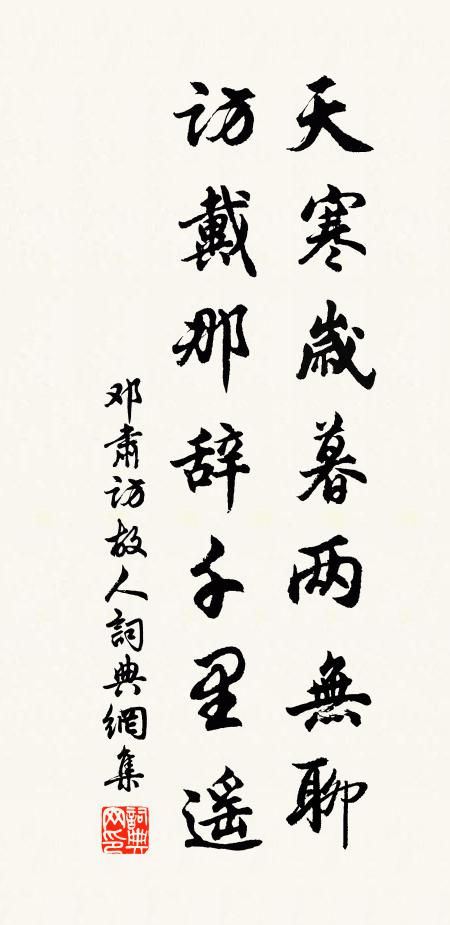 天寒歲暮两無聊
訪戴那辞千里遥
邓肅訪故人詞典網集
詞典
网印